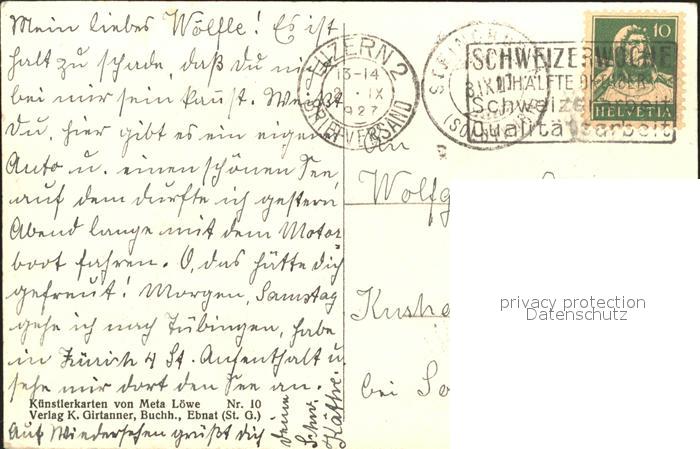 Mein liebes Wölfle! Es ist
halt zu schade, daß du nicht
bei mir sein kannst. Weißt
du, hier gibt es ein eigenes
Auto u. einen schönen See,
auf dem durfte ich gestern
Abend lange mit dem Motor-
boot fahren. O, das hätte dich
gefreut! Morgen, Samstag
gehe ich nach Tübingen, habe
in Zürich 4 St. Aufenthalt u.
sehe mir dort den See an.
Künstlerkarten von Meta Löwe Nr. 10
Verlag K. Girtanner, Buchh., Ebnat (St. G.)
Auf Wiedersehen grüßt dich
deine
Schw.
Käthe.
LUZERN 2
13-14
IX
1927
BRIEFVERSAND
SCHWEIZERWOCHE
II. HÄLFTE OKTOBER
Schweizerarbeit
Qualitätsarbeit
10
HELVETIA
An
Wolfg
bei
privacy protection
Datenschutz